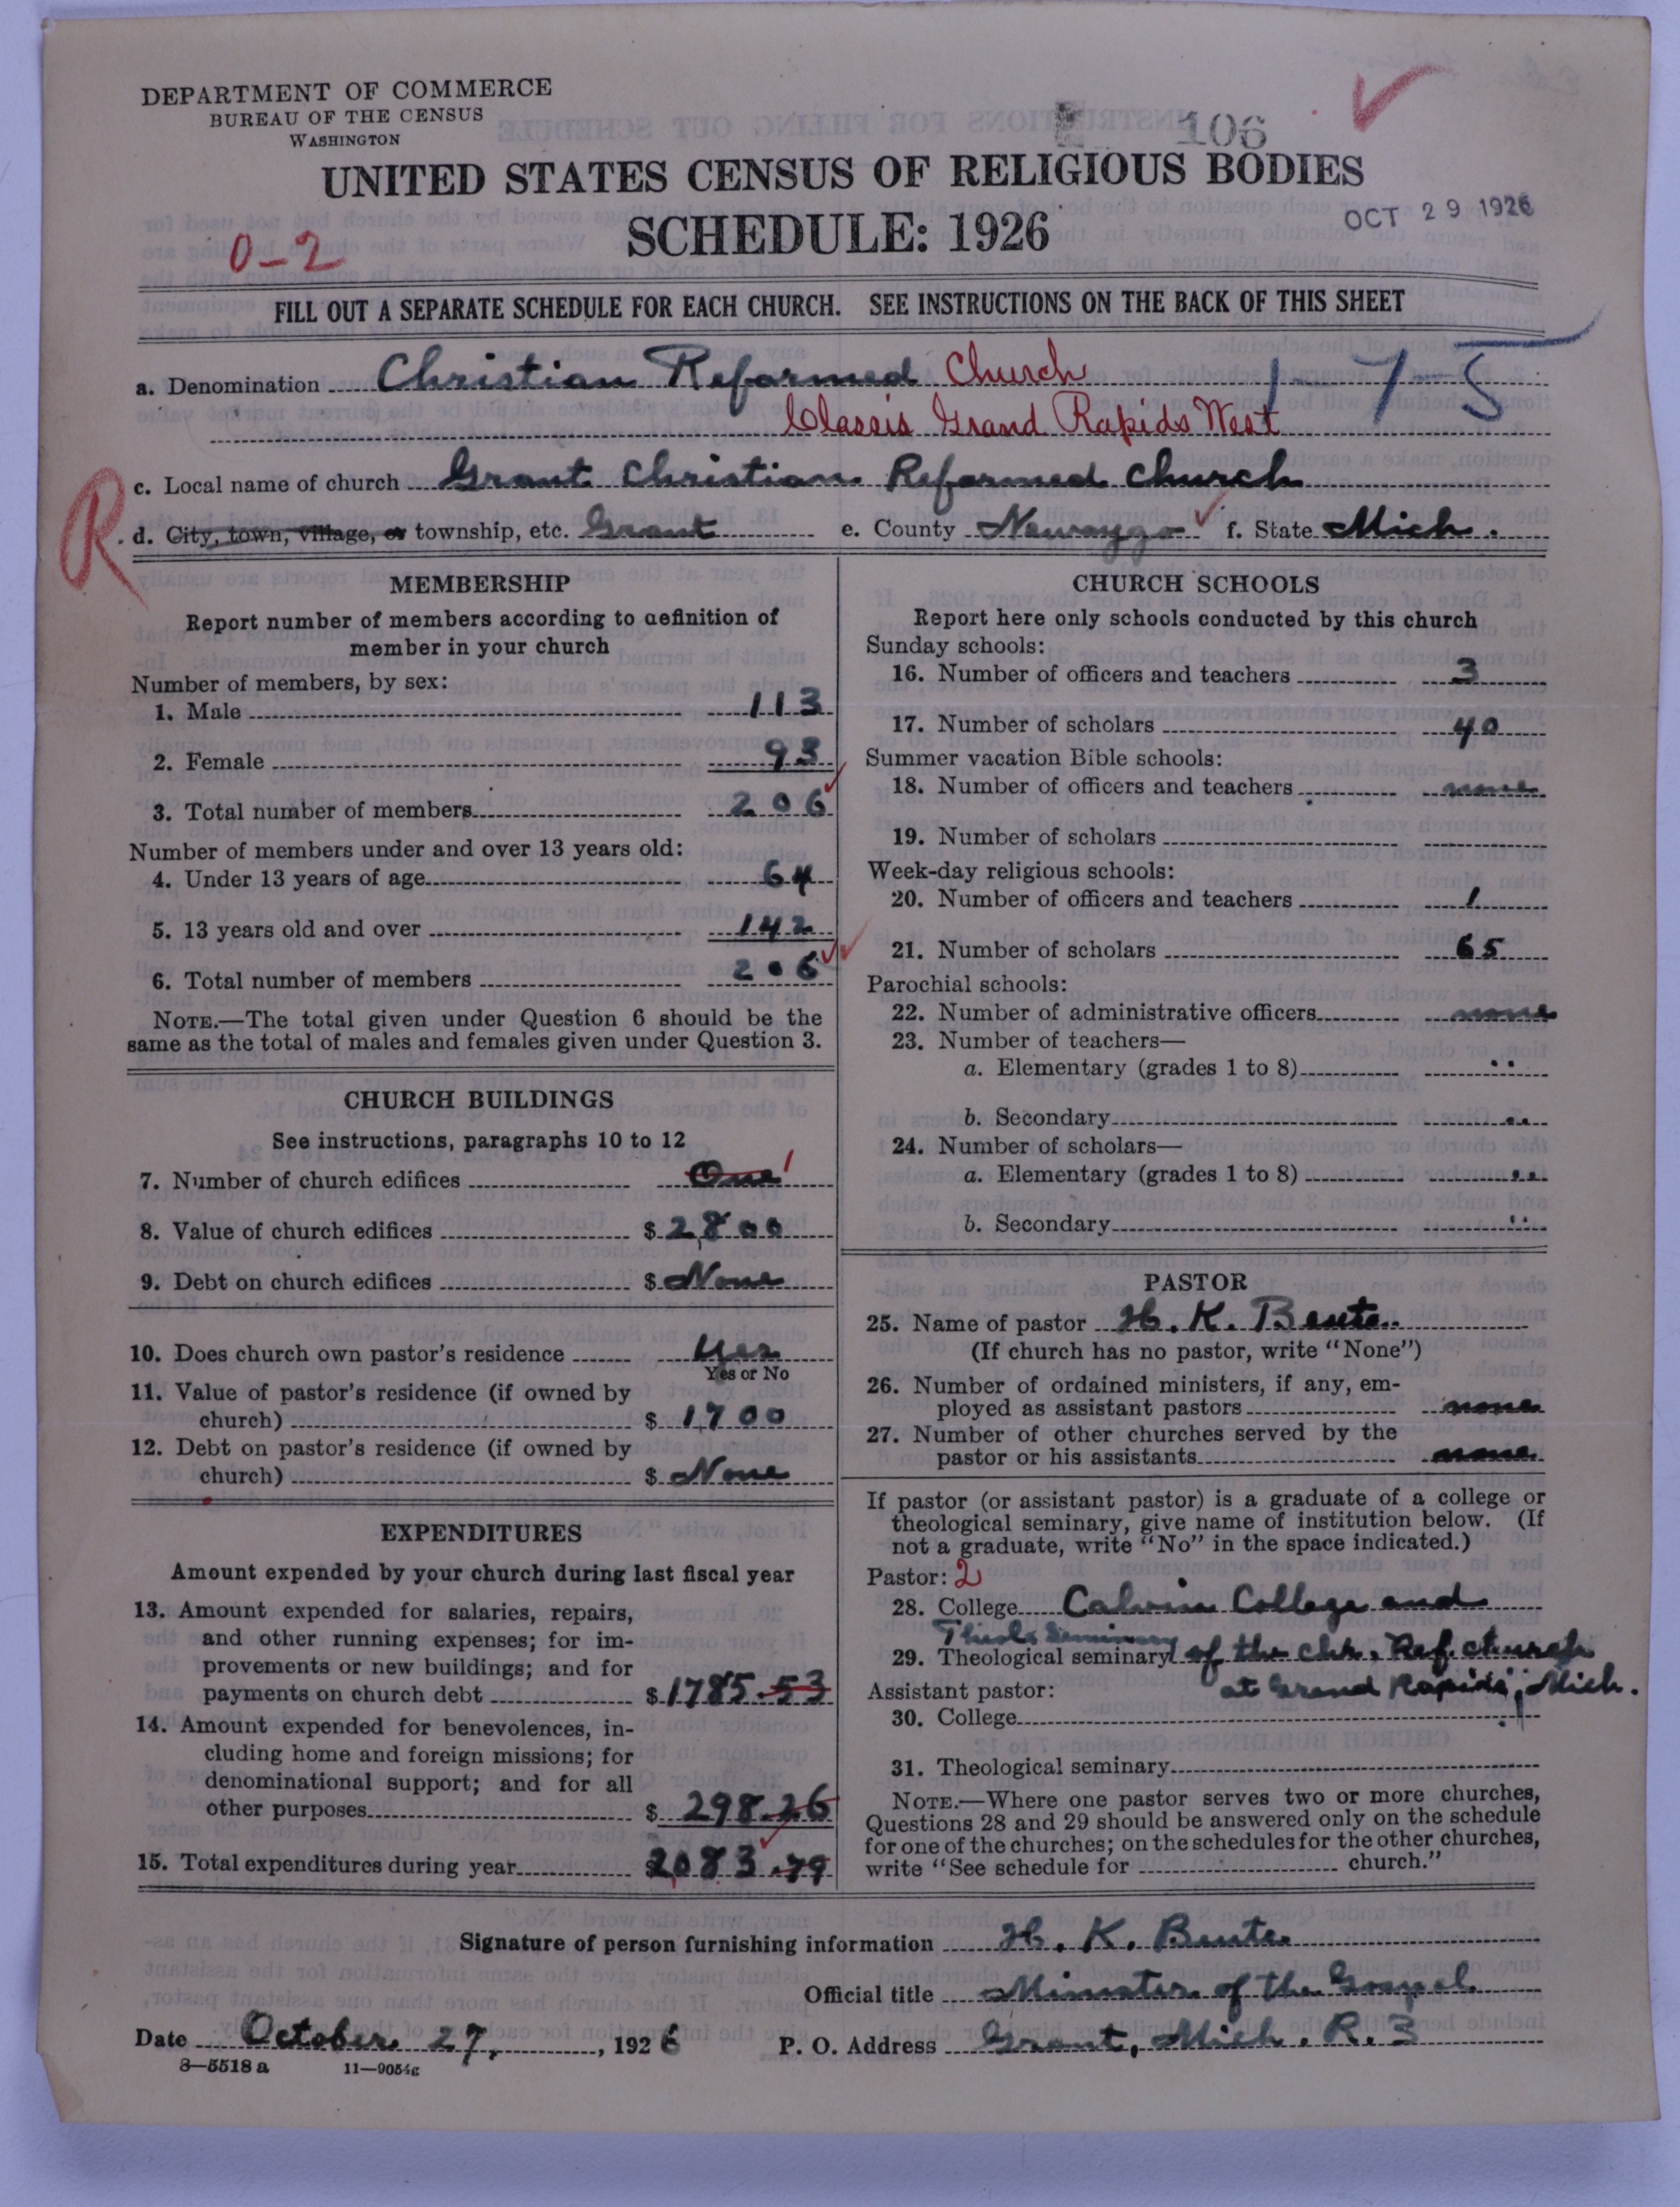 DEPARTMENT OF COMMERCE
BUREAU OF THE CENSUS
WASHINGTON
106
UNITED STATES CENSUS OF RELIGIOUS BODIES
SCHEDULE: 1926
OCT 29 1926
0-2
FILL OUT A SEPARATE SCHEDULE FOR EACH CHURCH. SEE INSTRUCTIONS ON THE BACK OF THIS SHEET
a. Denomination Christian Reformed Church 1-7-5
Classis Grand Rapids West
c. Local name of church Grant Christian Reformed Church
R
d. City, town, village, or township, etc. Grant e. County Newaygo f. State Mich.
MEMBERSHIP
Report number of members according to definition of
member in your church
Number of members, by sex:
1. Male 113
2. Female 93
3. Total number of members 206
Number of members under and over 13 years old:
4. Under 13 years of age 64
5. 13 years old and over 142
6. Total number of members 206
NOTE.—The total given under Question 6 should be the
same as the total of males and females given under Question 3.
CHURCH BUILDINGS
See instructions, paragraphs 10 to 12
7. Number of church edifices One 1
8. Value of church edifices $2,800
9. Debt on church edifices $ None
10. Does church own pastor's residence Yes
Yes or No
11. Value of pastor's residence (if owned by
church) $ 1,700
12. Debt on pastor's residence (if owned by
church) $ None
EXPENDITURES
Amount expended by your church during last fiscal year
13. Amount expended for salaries, repairs,
and other running expenses; for im-
provements or new buildings; and for
payments on church debt $1785.53
14. Amount expended for benevolences, in-
cluding home and foreign missions; for
denominational support; and for all
other purposes $ 298.26
15. Total expenditures during year $2083.79
CHURCH SCHOOLS
Report here only schools conducted by this church
Sunday schools:
16. Number of officers and teachers 3
17. Number of scholars 40
Summer vacation Bible schools:
18. Number of officers and teachers none
19. Number of scholars
Week-day religious schools:
20. Number of officers and teachers 1
21. Number of scholars 65
Parochial schools:
22. Number of administrative officers none
23. Number of teachers—
a. Elementary (grades 1 to 8) "
b. Secondary "
24. Number of scholars—
a. Elementary (grades 1 to 8) "
b. Secondary "
PASTOR
25. Name of pastor H. K. Bente
(If church has no pastor, write "None")
26. Number of ordained ministers, if any, em-
ployed as assistant pastors none
27. Number of other churches served by the
pastor or his assistants none
If pastor (or assistant pastor) is a graduate of a college or
theological seminary, give name of institution below. (If
not a graduate, write "No" in the space indicated.)
Pastor: 2
28. College Calvin College and
Theol. Seminary
29. Theological seminary of the Chr. Ref. church
Assistant pastor: at Grand Rapids, Mich.
30. College
31. Theological seminary
NOTE.—Where one pastor serves two or more churches,
Questions 28 and 29 should be answered only on the schedule
for one of the churches; on the schedules for the other churches,
write "See schedule for church."
Signature of person furnishing information H. K. Bente
Official title Minister of the Gospel
Date October 27, 1926 P. O. Address Grant, Mich. R. 3
8—5518 a 11—9054g